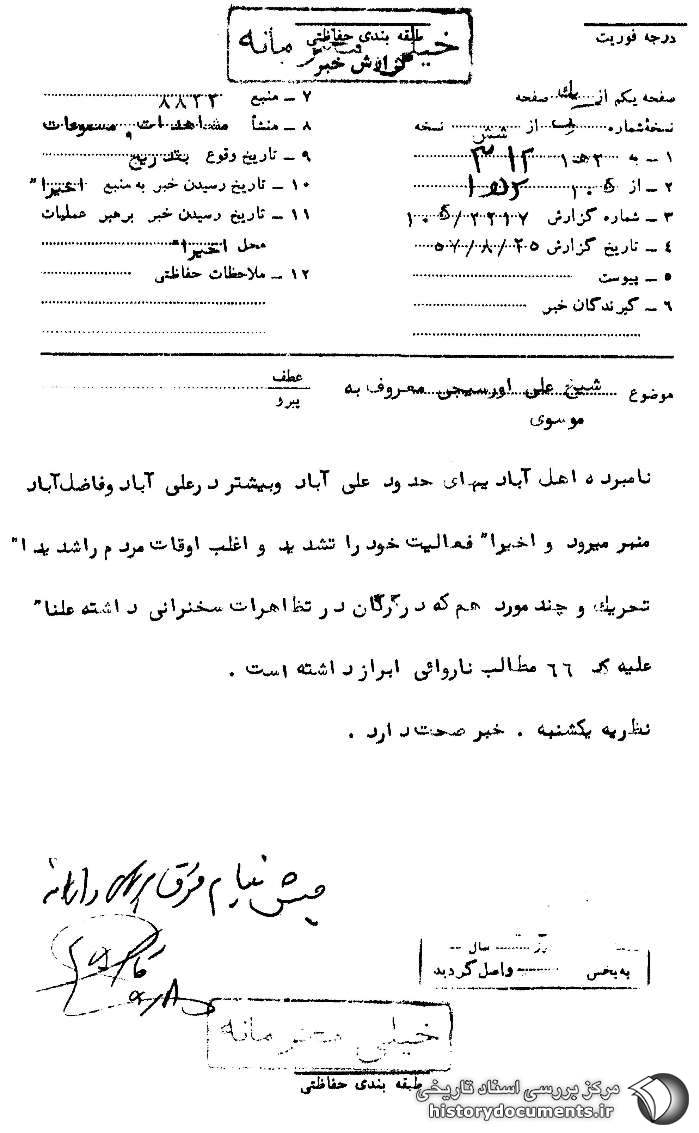 درجه فوریت
طبقه بندی حفاظتی
خیلی محرمانه
گزارش خبر
صفحه یکم از یك صفحه
نسخه شماره از شش نسخه
۱ ـ به ۳ ه‍ ۱ ۳۱۲
۲ ـ از ۱۰ ه‍
۳ ـ شماره گزارش ۲۲۱۷/ه‍ ۱۰
٤ ـ تاریخ گزارش ۵۷/۸/۲۵
۵ ـ پیوست
٦ ـ گیرندگان خبر
۷ ـ منبع ۸۸۲۲
۸ ـ منشأ مشاهدات و مسموعات
۹ ـ تاریخ وقوع بتدریج
۱۰ ـ تاریخ رسیدن خبر به منبع اخیرا"
۱۱ ـ تاریخ رسیدن خبر برهبر عملیات
محل اخیرا"
۱۲ ـ ملاحظات حفاظتی
موضوع شیخ علی اورسجی معروف به
موسوی
عطف
پیرو
نامبرده اهل آباد بیهای حدود علی آباد وبیشتر درعلی آباد وفاضل‌آباد
منبر میرود و اخیرا" فعالیت خود را تشدید و اغلب اوقات مردم راشدیدا"
تحریك و چند مورد هم که در گرگان در تظاهرات سخنرانی داشته علنا"
علیه کد ٦٦ مطالب ناروائی ابراز داشته است .
نظریه یکشنبه . خبر صحت دارد .
روز سال
به‌بخش واصل گردید
خیلی محرمانه
طبقه بندی حفاظتی
مرکز بررسی اسناد تاریخی
historydocuments.ir